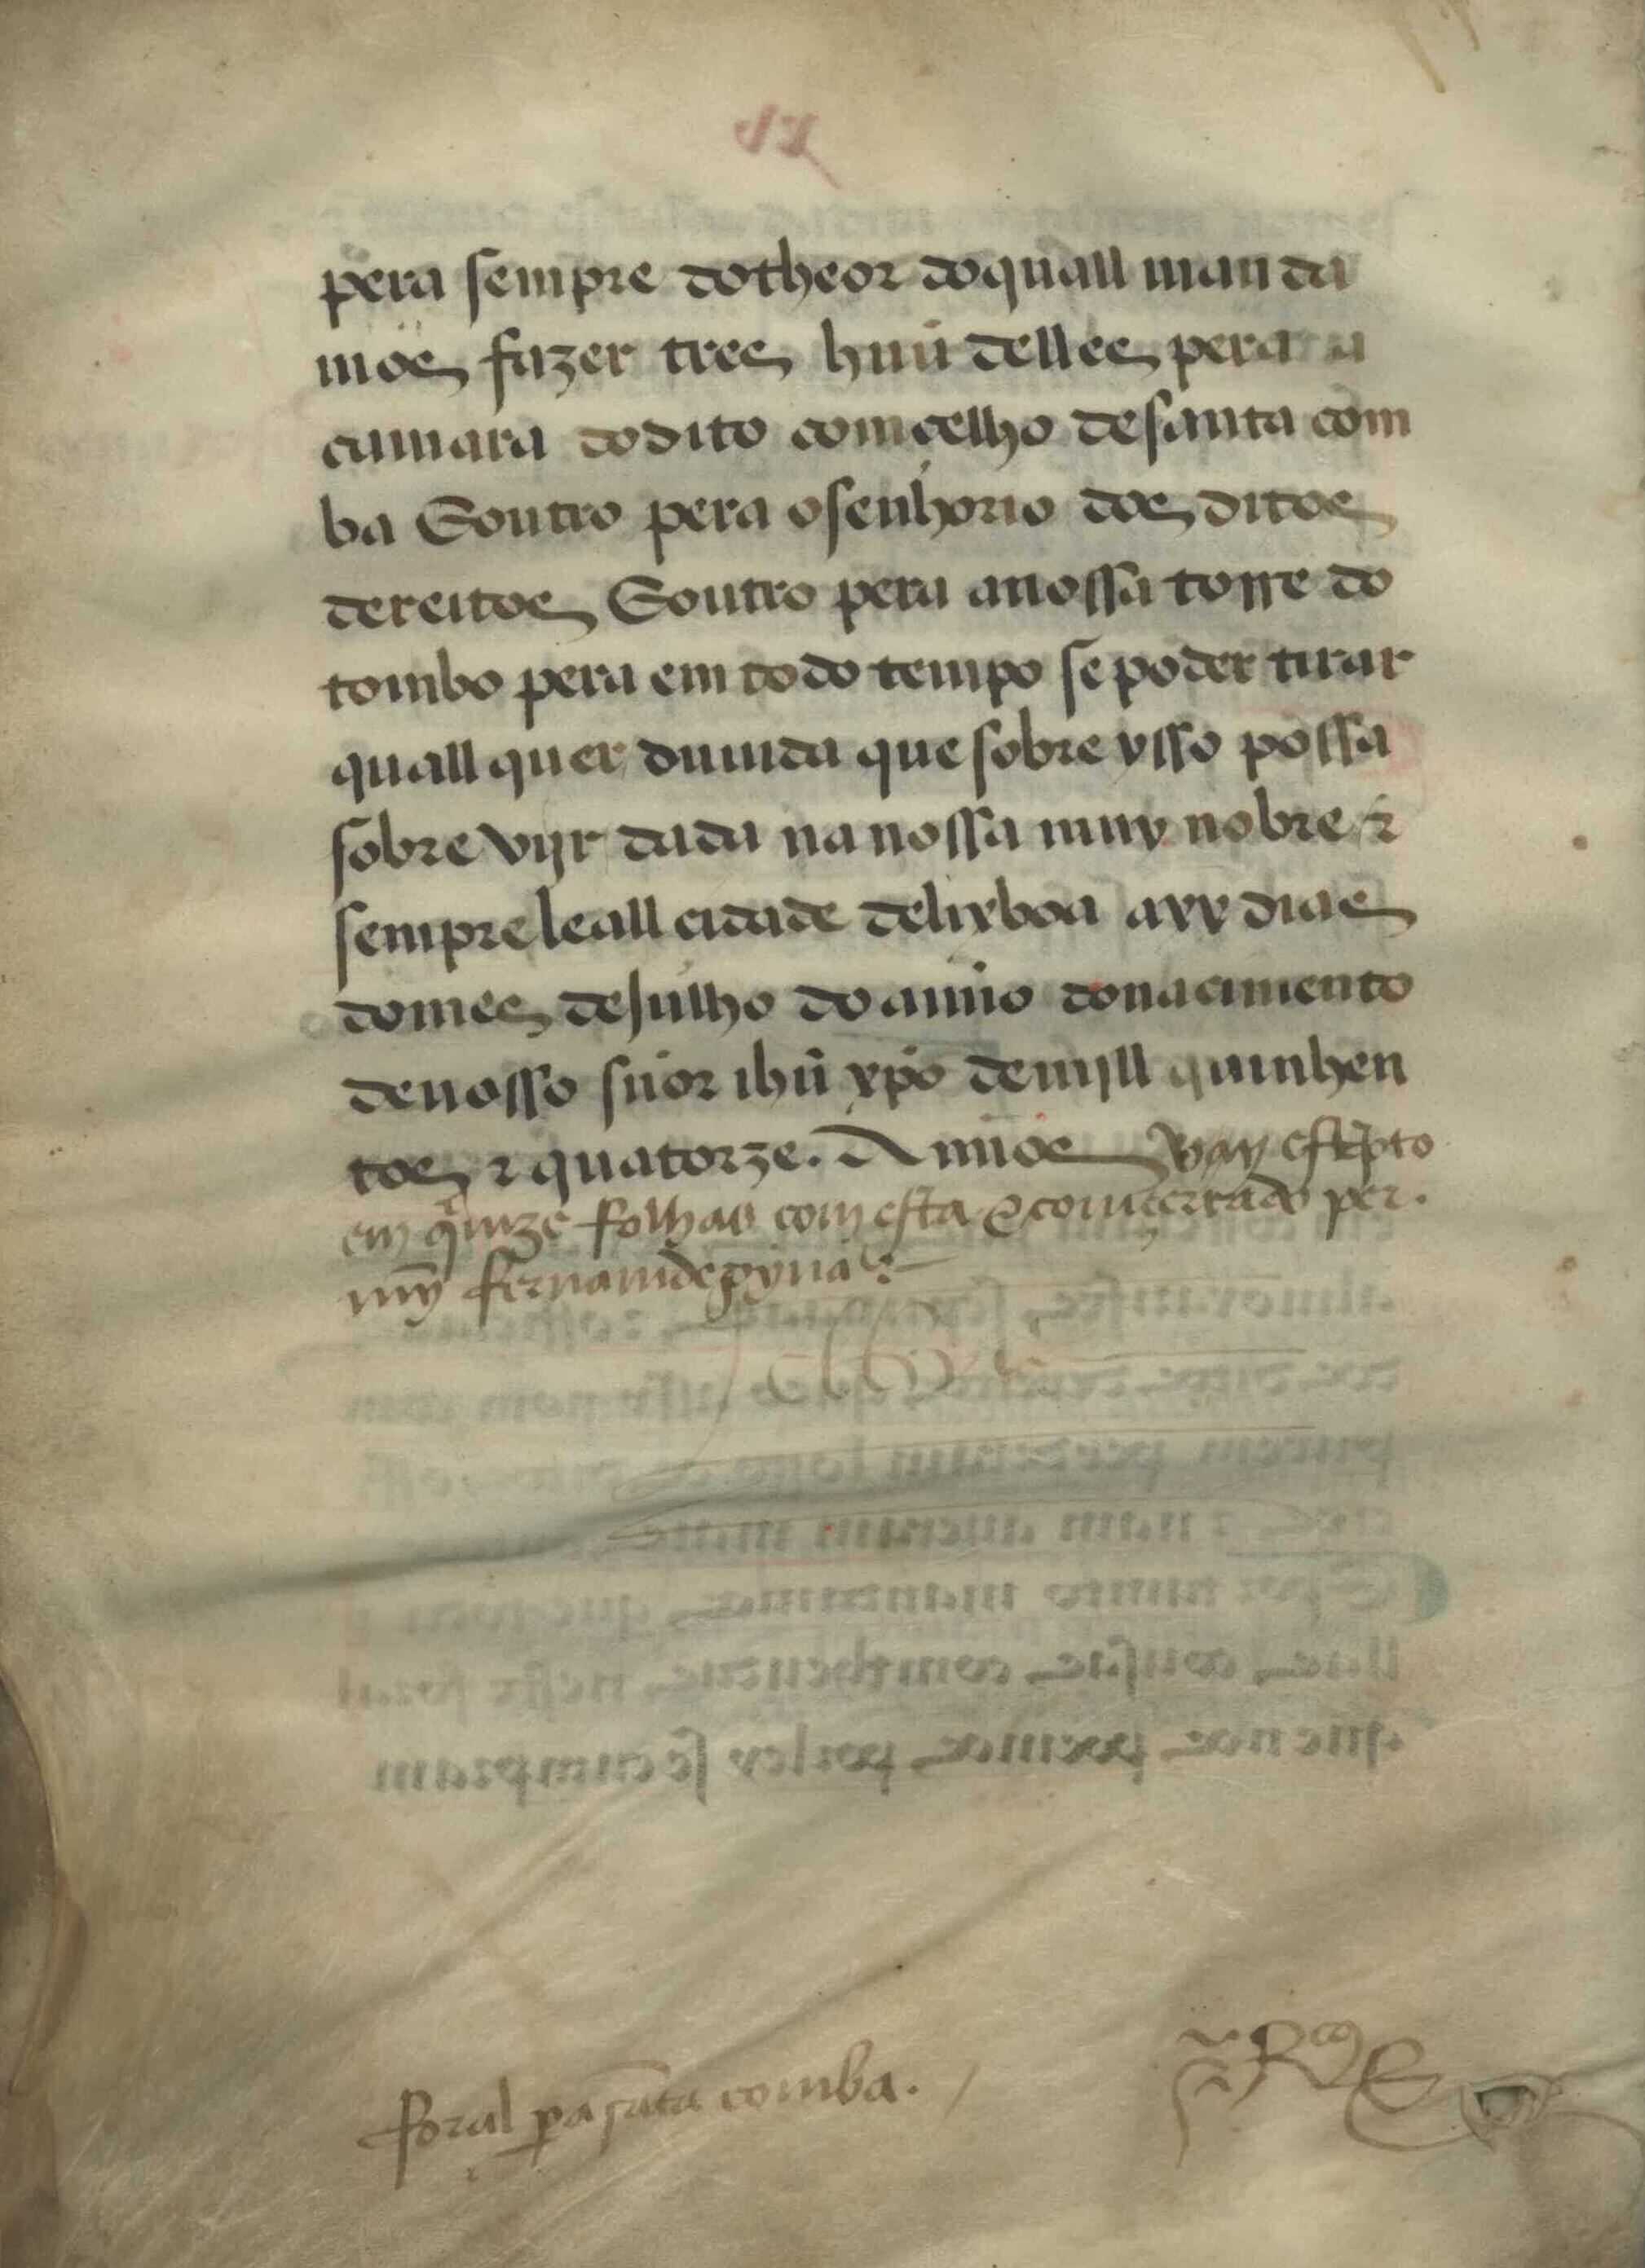 pera sempre dotheor doquall manda
mos fazer tres huũ delles pera a
camara dodito comcelho desanta com
ba Eoutro pera osenhorio dos ditos
dereitos Eoutro pera anossa torre do
tombo pera em todo tempo se poder tirar
quall quer duuida que sobre ysso possa
sobre vijr dada na nossa muy nobre ⁊
sempre leall cidade delixboa a xx dias
domes de Julho do anno donacimento
denosso sñor ihũ xpõ demjll quinhen
tos ⁊ quatorze. Annos Vay espto
em quinze folhas com esta & comçertado per
mỹ fernamdepyna
foral pa santa comba.